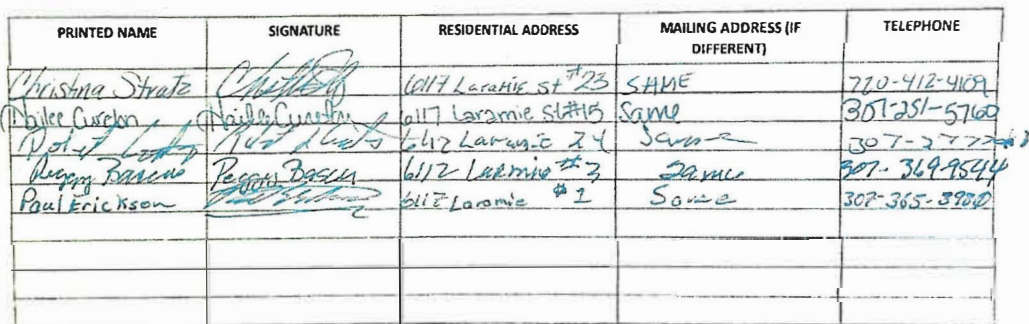 PRINTED NAME SIGNATURE RESIDENTIAL ADDRESS MAILING ADDRESS (IF DIFFERENT) TELEPHONE
Christina Stratz 6117 Laramie St #23 SAME 720-412-4109
Hailee Cureton Hailee Cureton 6117 Laramie St #15 Same 307-251-5760
6112 Laramie 24 Same 307-277
Peggy Bascus 6112 Larmie #3 Same 307-369-9544
Paul Erickson 6112 Laramie #1 Same 307-365-3980